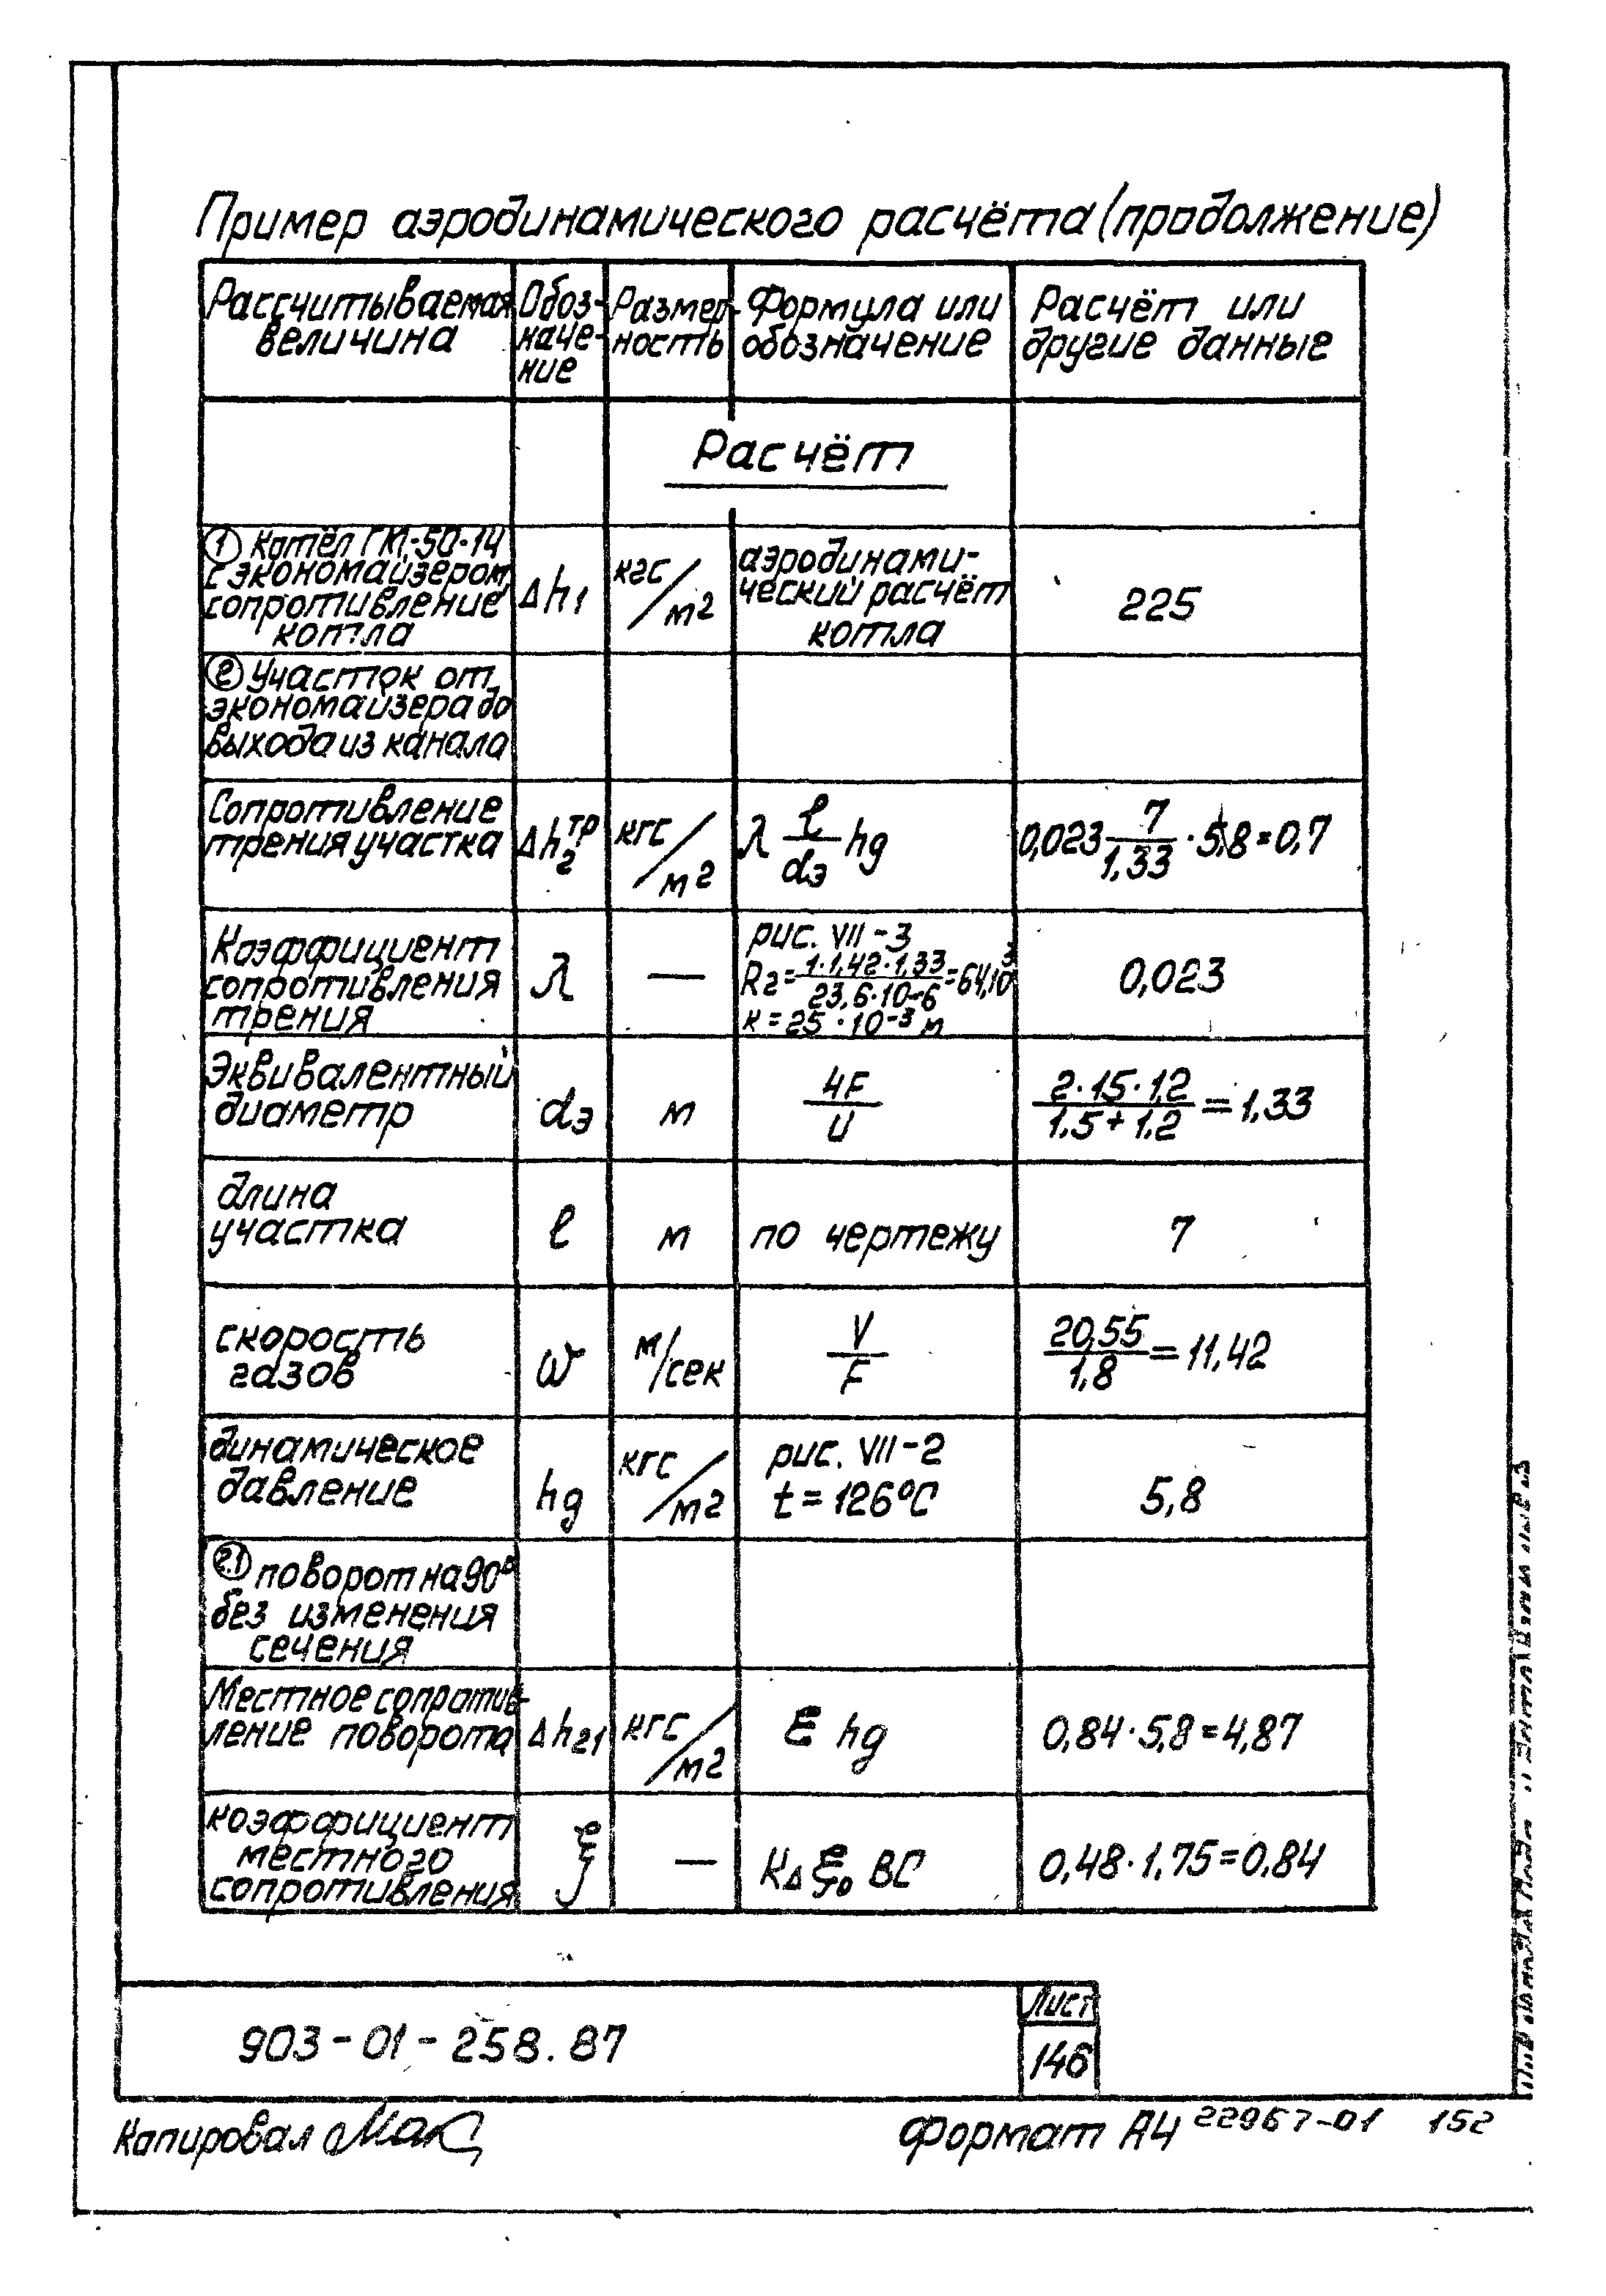 Пример аэродинамического расчёта (продолжение)
Рассчитываемая величина | Обоз-наче-ние | Размер-ность | Формула или обозначение | Расчёт или другие данные
Расчёт
① Котёл ГМ-50-14 с экономайзером, сопротивление котла | Δh₁ | кгс/м² | аэродинами-ческий расчёт котла | 225
② Участок от экономайзера до выхода из канала
Сопротивление трения участка | Δh₂ᵀᴾ | кгс/м² | λ l/dэ hд | 0,023 7/1,33 · 5,8 = 0,7
Коэффициент сопротивления трения | λ | — | рис. VII-3 R₂ = 1·1,42·1,33 / 23,6·10-6 = 64,10³ к = 25 · 10⁻³ м | 0,023
Эквивалентный диаметр | dэ | м | 4F/U | 2·15·1,2 / 1,5+1,2 = 1,33
длина участка | l | м | по чертежу | 7
скорость газов | w | м/сек | V/F | 20,55/1,8 = 11,42
динамическое давление | hд | кгс/м² | рис. VII-2 t = 126°С | 5,8
2.1 поворот на 90° без изменения сечения
Местное сопротив-ление поворота | Δh₂₁ | кгс/м² | Ɛ hд | 0,84 · 5,8 = 4,87
коэффициент местного сопротивления | ξ | — | К△ ξ₀ ВС | 0,48 · 1,75 = 0,84
903-01-258.87
Лист
146
Копировал
Формат А4 22967-01 152